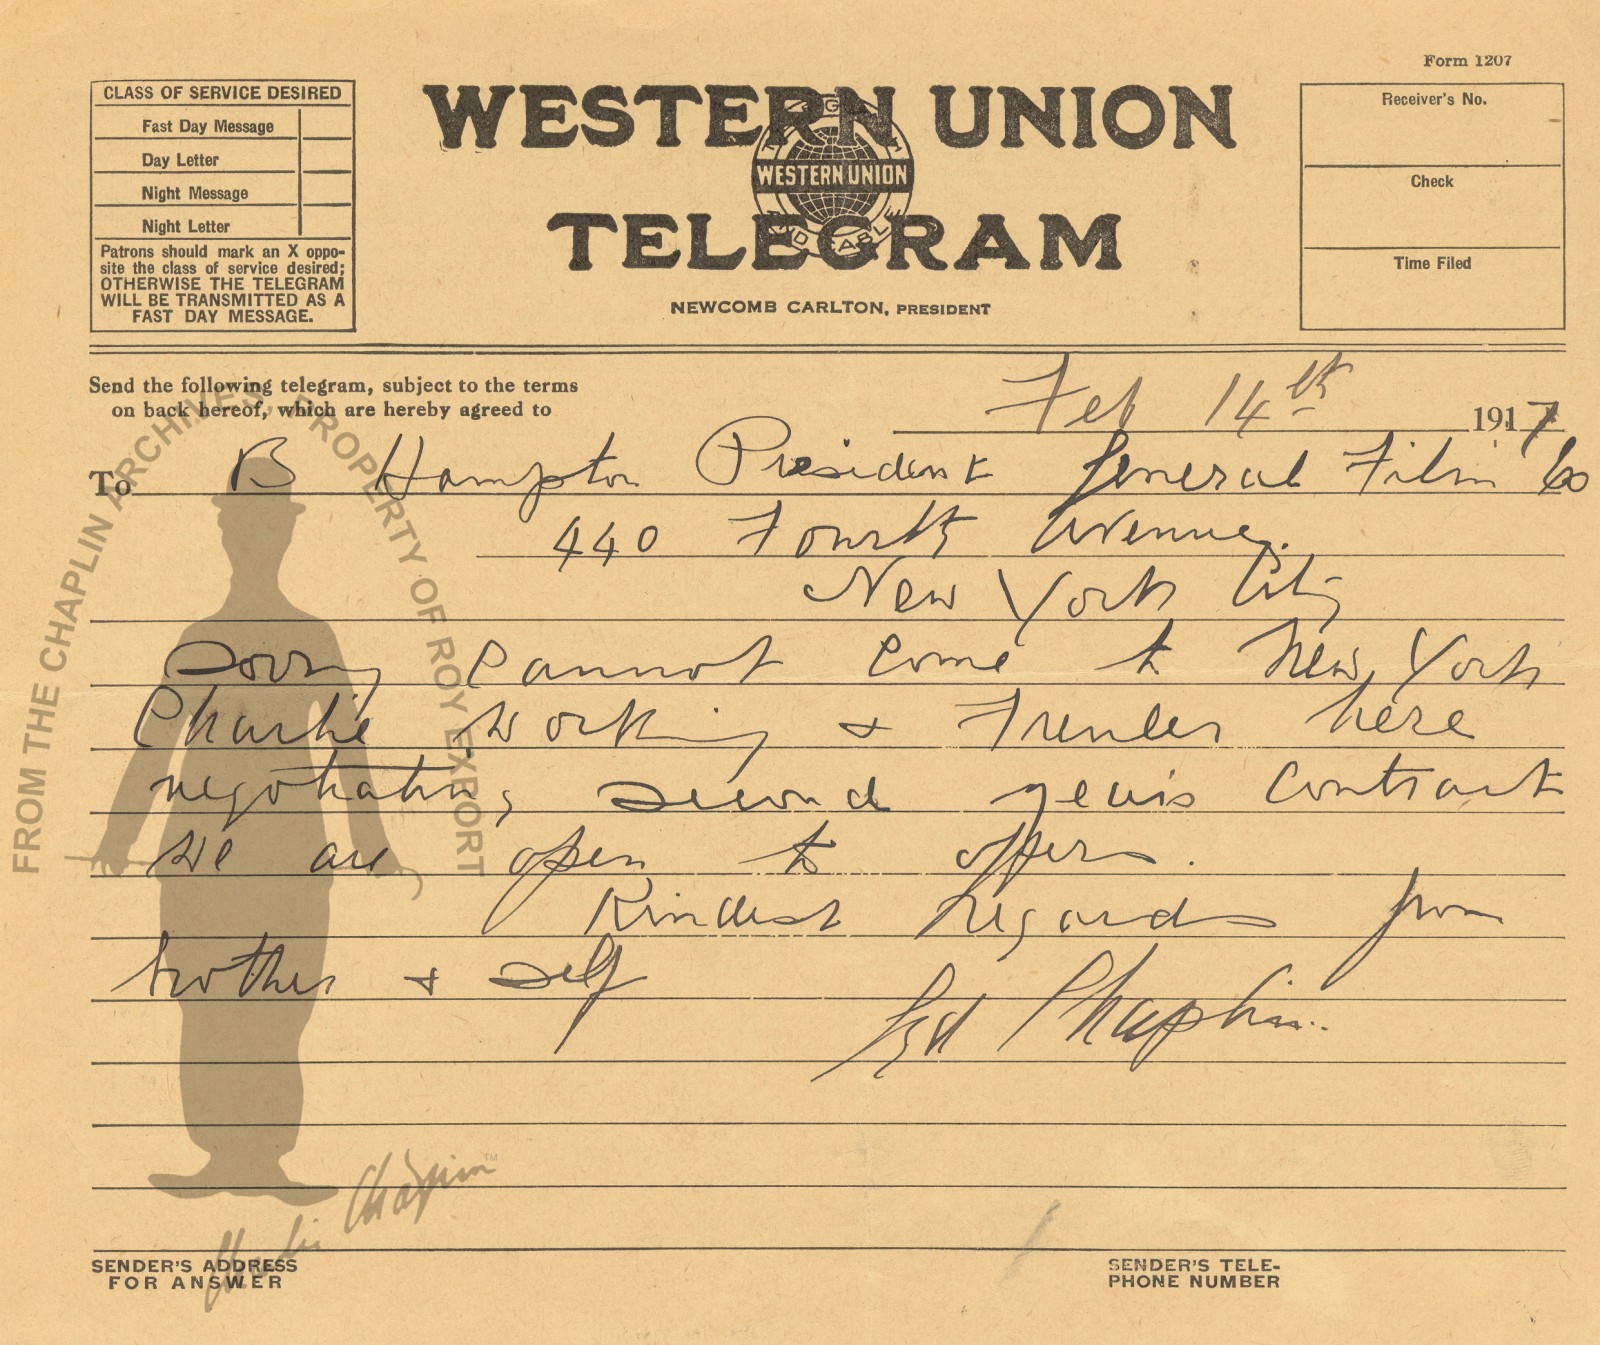 Form 1207
CLASS OF SERVICE DESIRED
Fast Day Message
Day Letter
Night Message
Night Letter
Patrons should mark an X oppo-
site the class of service desired;
OTHERWISE THE TELEGRAM
WILL BE TRANSMITTED AS A
FAST DAY MESSAGE.
WESTERN UNION
WESTERN UNION
TELEGRAM
NEWCOMB CARLTON, PRESIDENT
Receiver's No.
Check
Time Filed
Send the following telegram, subject to the terms
on back hereof, which are hereby agreed to
Feb 14th 1917
To B Hampton President General Film Co
440 Fourth Avenue.
New York City
Sorry cannot come to New York
Charlie working & Freuler here
negotiating second years contract
we are open to offers.
Kindest regards from
brother & self
Syd Chaplin
SENDER'S ADDRESS
FOR ANSWER
SENDER'S TELE-
PHONE NUMBER
FROM THE CHAPLIN ARCHIVES, PROPERTY OF ROY EXPORT
Charlie Chaplin™